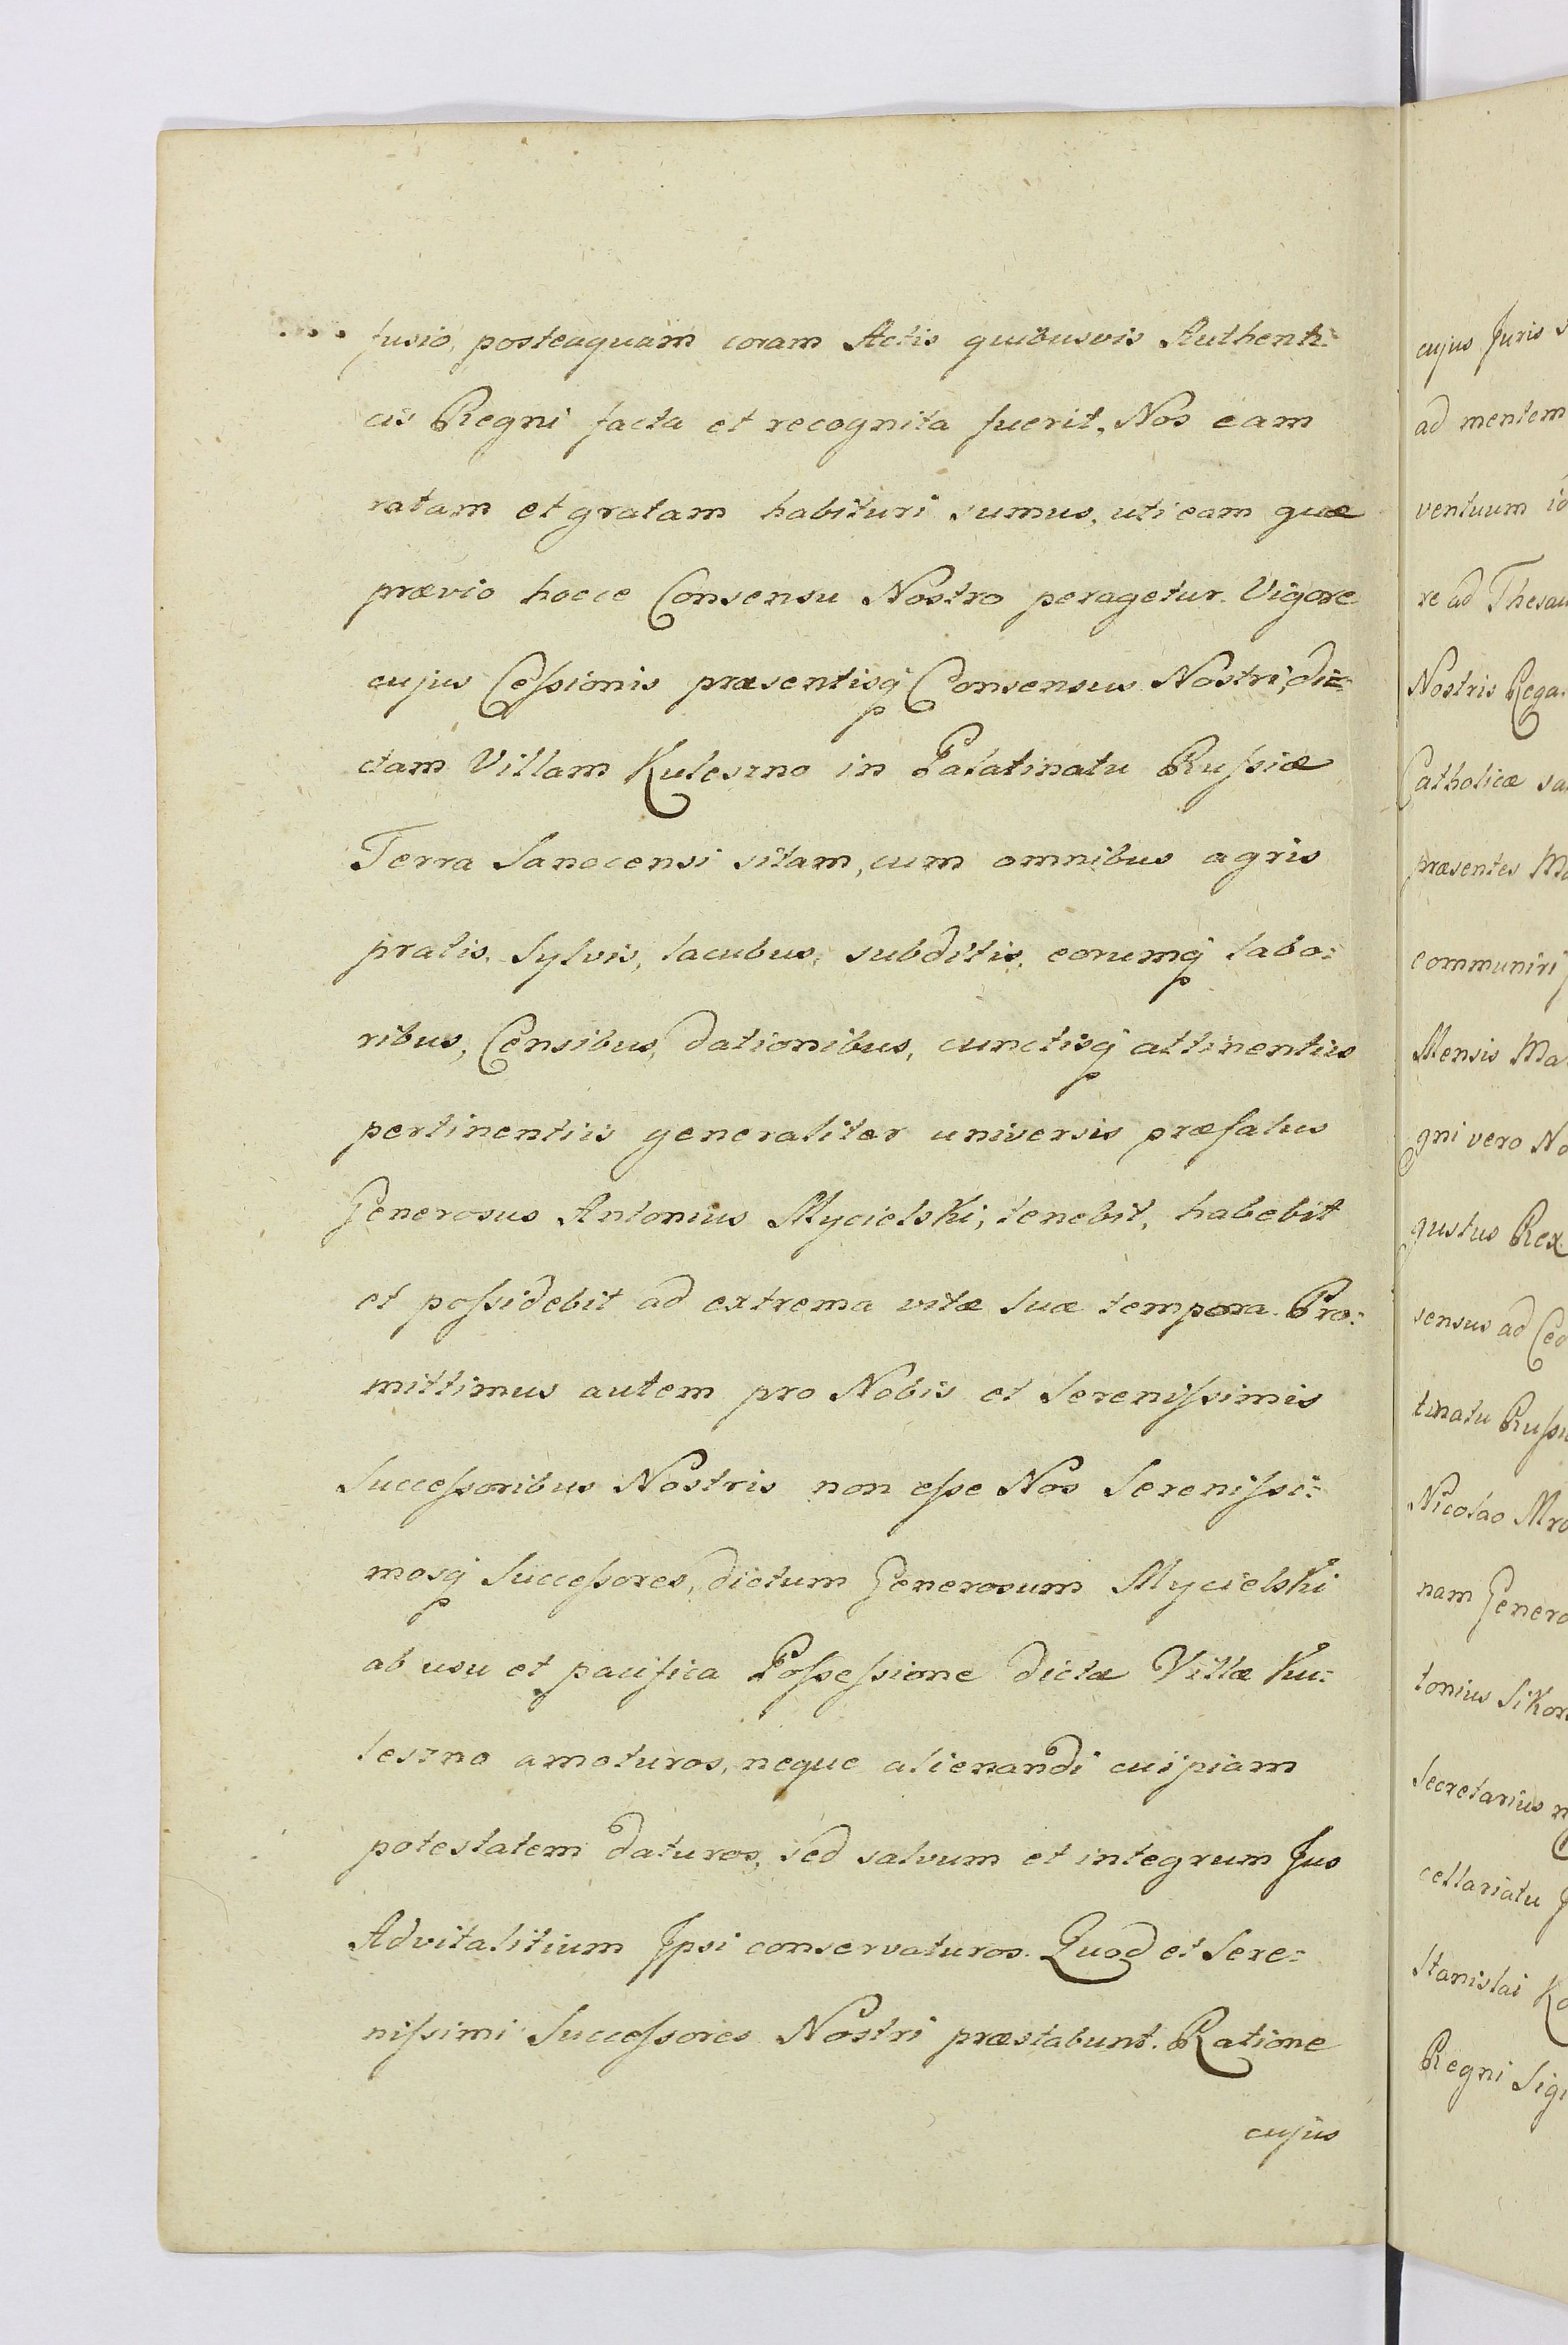 fusio, posteaquam coram Actis quibusvis Authenti-
cis Regni facta et recognita fuerit, Nos eam
ratam et gratam habituri sumus, uti eam quæ
prævio hocce Consensu Nostro peragetur. Vigore
cujus Cessionis præsentisq Consensus Nostri, di-
ctam Villam Kuleszno in Palatinatu Russiæ
Terra Sanocensi sitam, cum omnibus agris
pratis, Sylvis, lacubus, subditis, eorumq labo-
ribus, Censibus, dationibus, cunctisq attinentiis
pertinentiis generaliter universis præfatus
Generosus Antonius Mycielski, tenebit, habebit
et possidebit ad extrema vitæ suæ tempora. Pro-
mittimus autem pro Nobis et Serenissimis
Successoribus Nostris non esse Nos Serenissi-
mosq Successores, dictum Generosum Mycielski
ab usu et pacifica Possessione dictæ Villæ Ku-
leszno amoturos, neque alienandi cuipiam
potestatem daturos, sed salvum et integrum Jus
Advitalitium Ipsi conservaturos. Quod et Sere-
nissimi Successores Nostri præstabunt. Ratione
cujus
cujus Juris
ad mentem
ventuum
re ad Thesau
Nostris Rega
Catholicæ sa
præsentes Ma
communiri
Mensis Ma
gni vero No
gustus Rex
sensus ad Ced
tinatu Russi
Nicolao Mro
nam Genero
tonius Sikor
Secretarius
cellariatu
Stanislai Ko
Regni Sigi